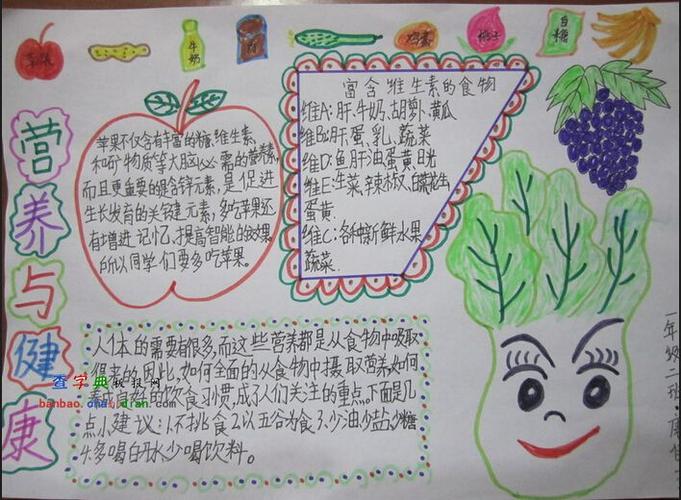 营养与健康
苹果
牛奶
鸡蛋
桃子
白糖
苹果不仅含有丰富的糖、维生素
和矿物质等大脑必需的营养素,
而且更重要的是含锌元素,是促进
生长发育的关键元素,多吃苹果还
有增进记忆、提高智能的效果。
所以同学们要多吃苹果。
富含维生素的食物
维A:肝、牛奶、胡萝卜、黄瓜
维B:肝、蛋、乳、蔬菜
维D:鱼肝油、蛋黄、日光
维E:生菜、辣椒、白菜花生
蛋黄.
维C:各种新鲜水果
蔬菜.
人体的需要很多,而这些营养都是从食物中吸取
得来的,因此,如何全面的从食物中摄取营养,如何
养成良好的饮食习惯,成了人们关注的重点。下面是几
点小建议:1.不挑食2.以五谷为食3.少油、少盐、少糖
4.多喝白开水少喝饮料。
查字典教报网
banbao.chazidian.com
一年级二班: